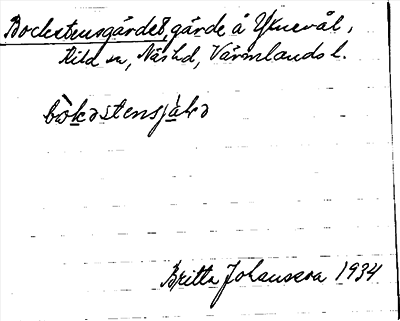 Bockstensgärdet, gärde å Yknevål,
Kild sn, Näs hd, Värmlands l.
bòkəstensjàlə
Britta Johansson 1934